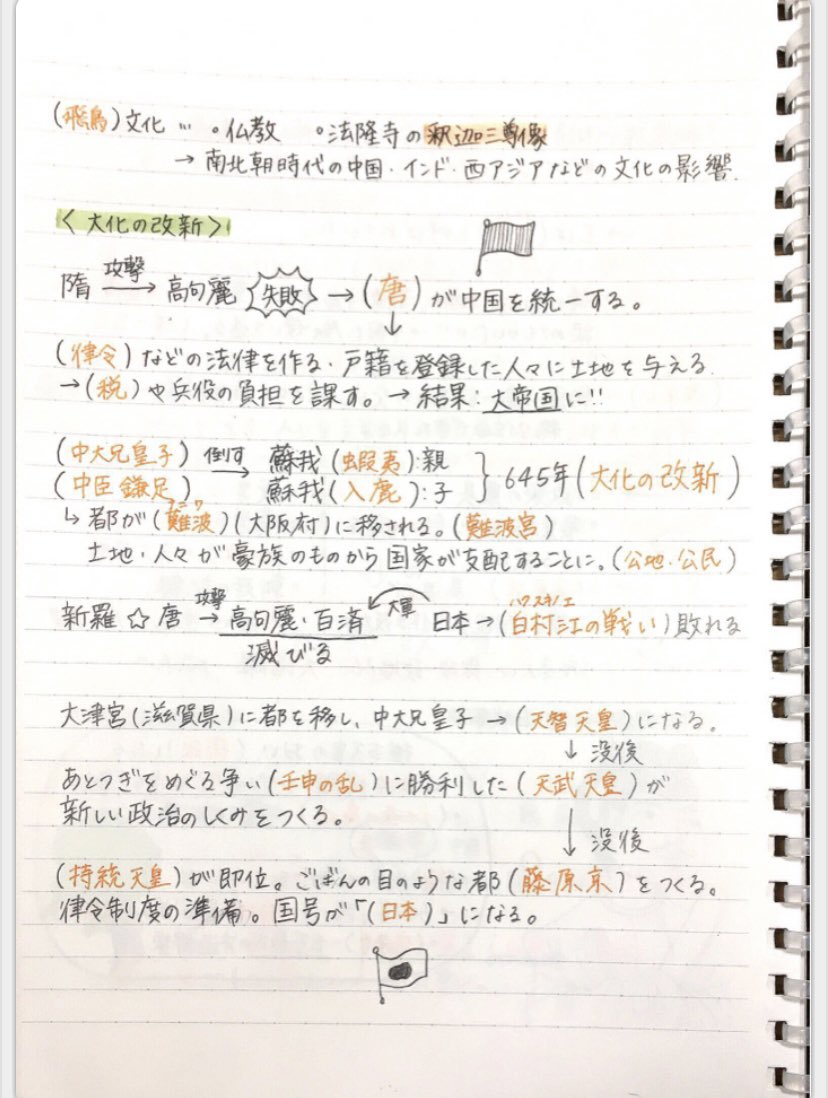 (飛鳥)文化 … ・仏教 ・法隆寺の釈迦三尊像
→ 南北朝時代の中国・インド・西アジアなどの文化の影響.
〈 大化の改新 〉
隋 攻撃→ 高句麗 失敗 → (唐)が中国を統一する。
↓
(律令)などの法律を作る・戸籍を登録した人々に土地を与える
→(税)や兵役の負担を課す。→ 結果:大帝国に!!
(中大兄皇子) 倒す→ 蘇我(蝦夷):親
(中臣鎌足) 蘇我(入鹿):子 } 645年(大化の改新)
ナニワ
↳ 都が(難波)(大阪府)に移される。(難波宮)
土地・人々が豪族のものから国家が支配することに。(公地・公民)
ハクスキノエ
新羅 ☆ 唐 攻撃→ 高句麗・百済 大軍 日本→(白村江の戦い)敗れる
滅びる
大津宮(滋賀県)に都を移し、中大兄皇子→(天智天皇)になる。
↓ 没後
あとつぎをめぐる争い(壬申の乱)に勝利した(天武天皇)が
新しい政治のしくみをつくる。
↓ 没後
(持統天皇)が即位。ごばんの目のような都(藤原京)をつくる。
律令制度の準備。国号が「(日本)」になる。